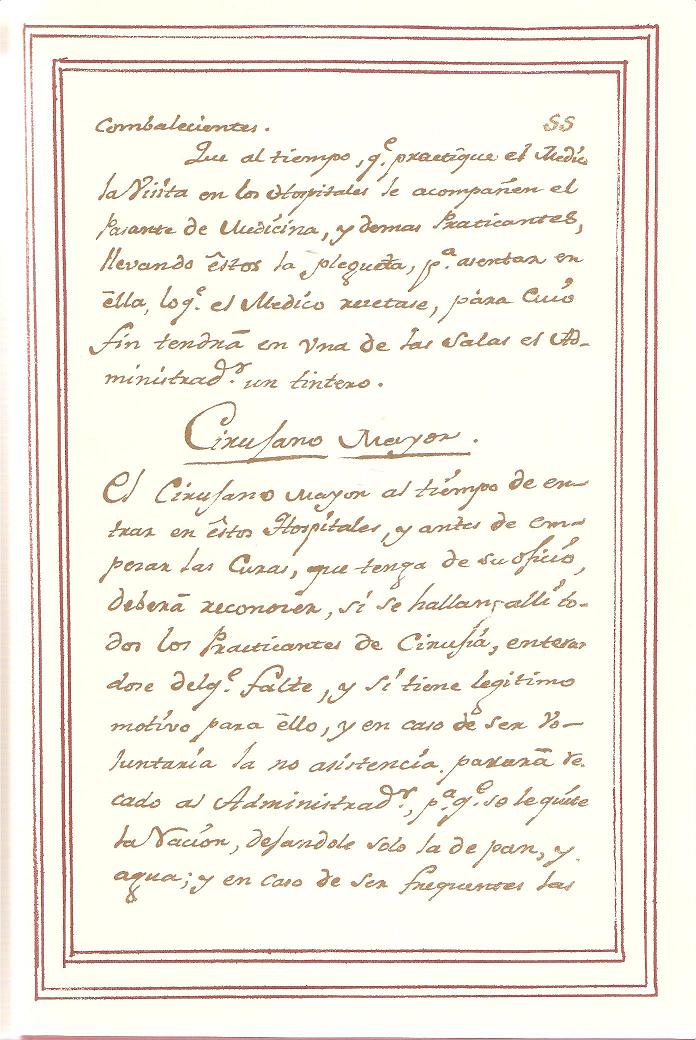 Combalecientes. 55
Que al tiempo, q.e practique el Medico
la Visita en los Hospitales le acompañen el
Pasante de Medicina, y demas Praticantes,
llevando êstos la plegueta, p.a asentar en
êlla, loq.e el Medico rezetase, para Cuio
fin tendrâ en Vna de las Salas el Ad-
ministrad.r un tintero.
Cirujano Mayor.
El Cirujano Mayor al tiempo de en-
trar en êstos Hospitales, y antes de em-
pezar las Curas, que tenga de su oficio,
deberâ reconozer, si se hallan allî to-
dos los Practicantes de Cirujia, enteran
dose delq.e falte, y si tiene legitimo
motivo para êllo, y en caso de ser Vo-
luntaria la no asistencia. pasarâ re-
cado al Administrad.r, p.a q.e se le quite
la Racion, dejandole solo la de pan, y
agua; y en caso de ser frequentes las